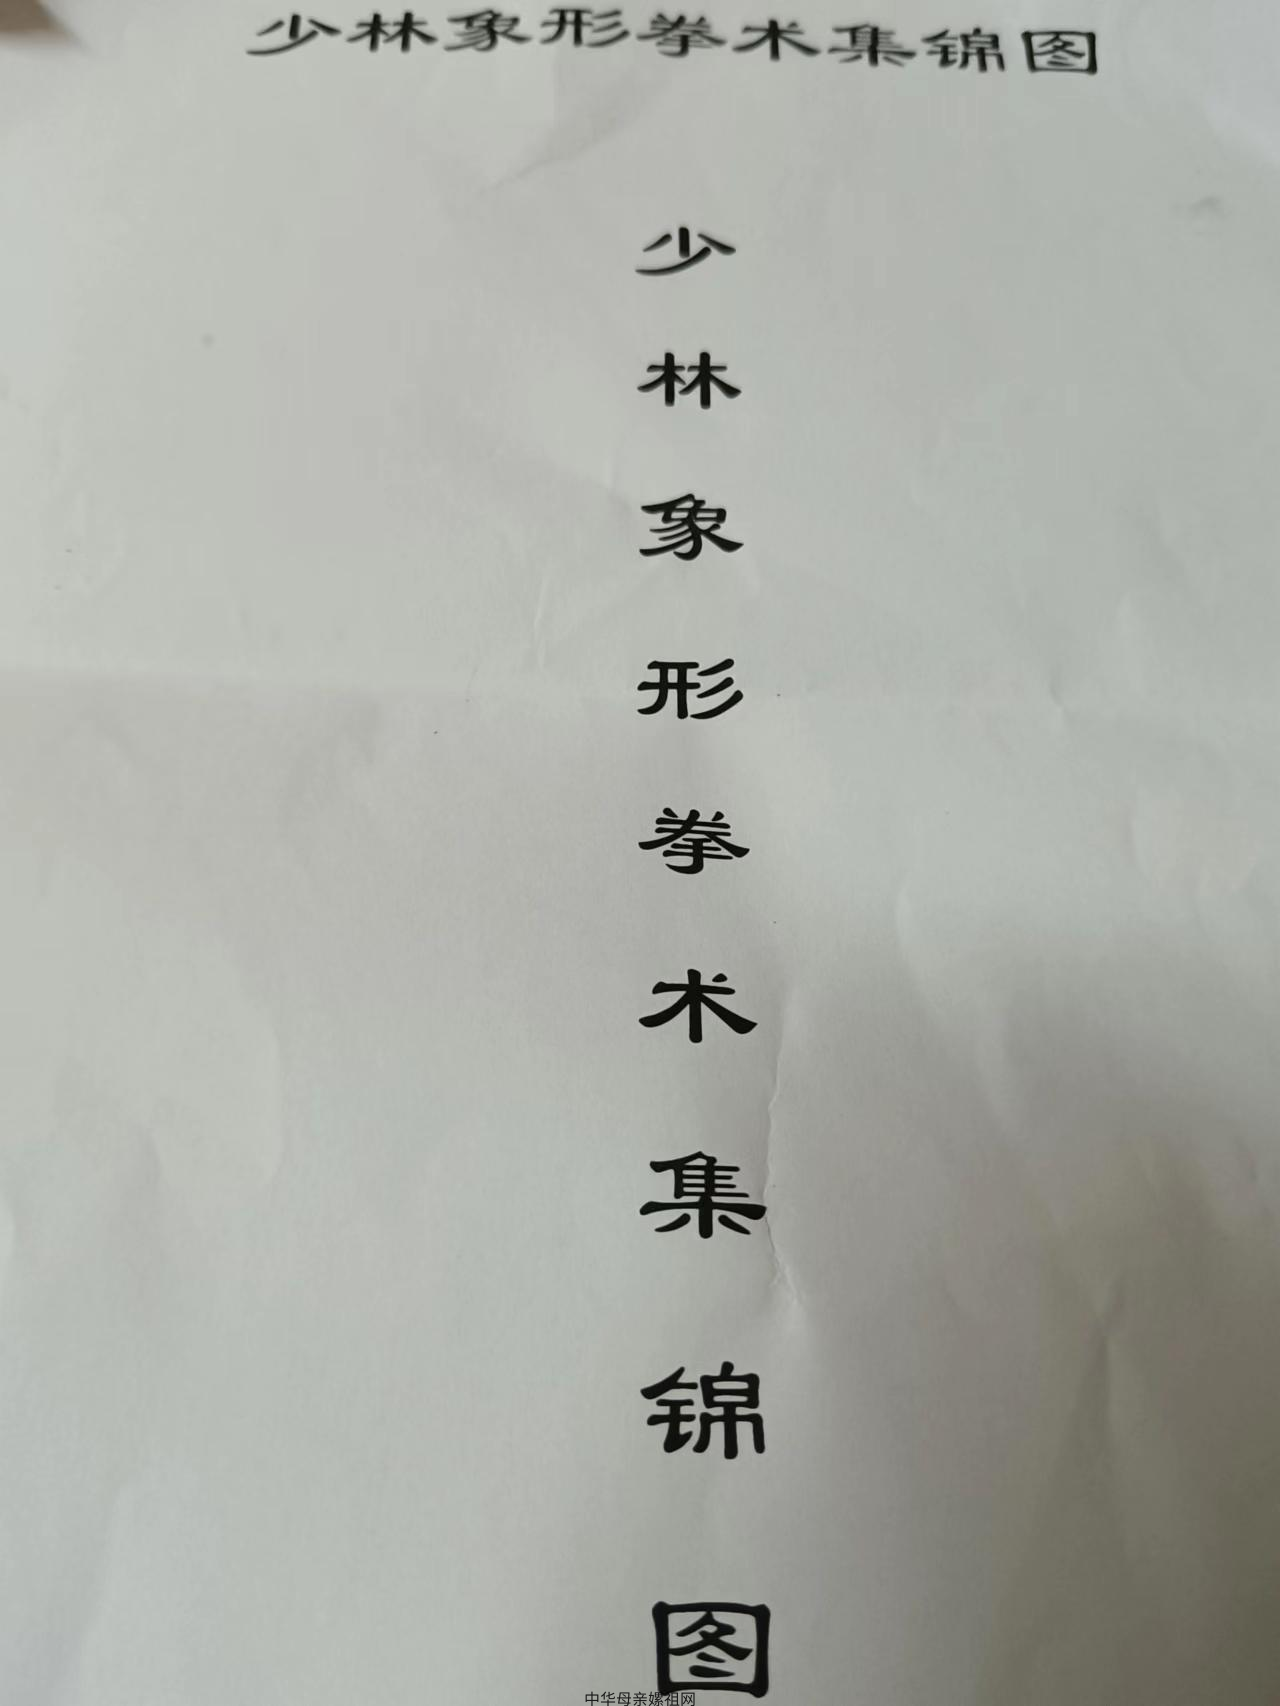 少林象形拳术集锦图
少林象形拳术集锦图
中华母亲嫘祖网